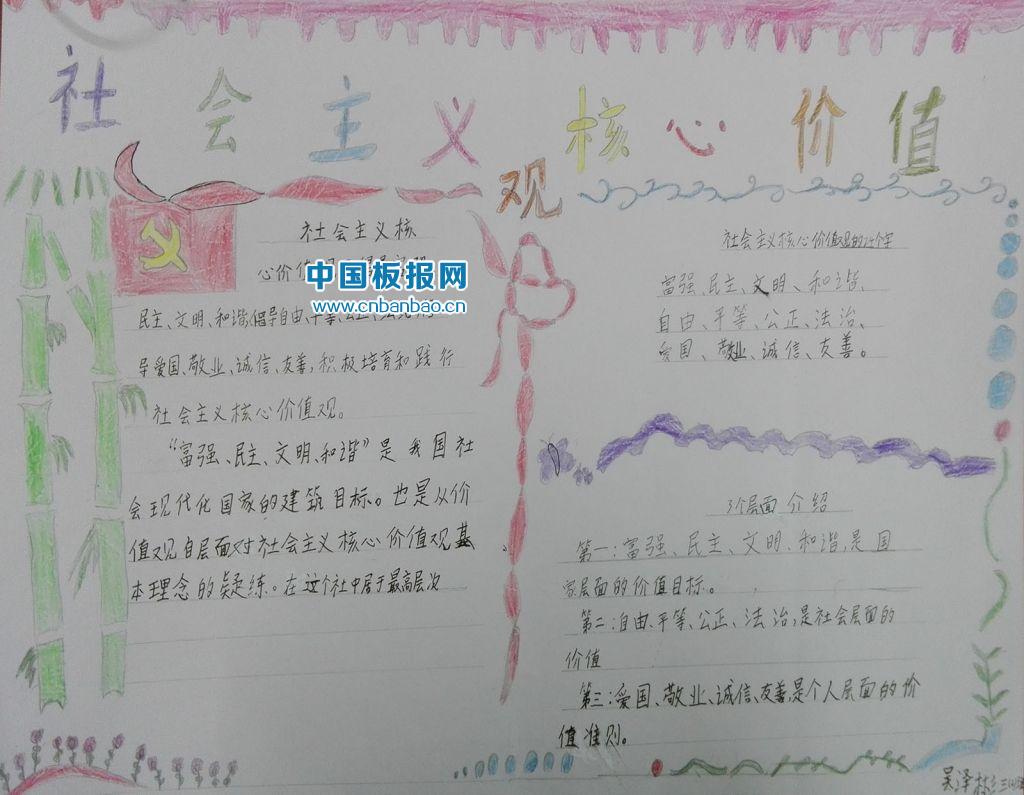 社会主义核心价值
观
社会主义核
心价值
中国板报网
www.cnbanbao.cn
民主、文明、和谐,倡导自由、平等、公正、法
导爱国、敬业、诚信、友善,积极培育和践行
社会主义核心价值观。
“富强、民主、文明、和谐”是我国社
会现代化国家的建筑目标。也是从价
值观自层面对社会主义核心价值观基
本理念的凝练。在这个社中居于最高层次
社会主义核心价值观的个字
富强、民主、文明、和谐、
自由、平等、公正、法治、
爱国、敬业、诚信、友善。
3个层面介绍
第一:富强、民主、文明、和谐,是国
家层面的价值目标。
第二:自由、平等、公正、法治,是社会层面的
价值
第三:爱国、敬业、诚信、友善,是个人层面的价
值准则。
吴泽